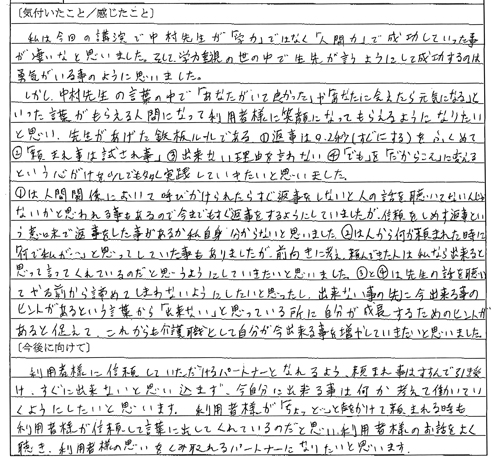 〔気付いたこと／感じたこと〕
私は今回の講演で中村先生が「学力」ではなく「人間力」で成功していった事
が凄いなと思いました。そして、学力重視の世の中で先生が言うようにして成功するのは
勇気がいる事のように思いました。
しかし、中村先生の言葉の中で「あなたがいて良かった」や「あなたに会えたら元気になる」と
いった言葉がもらえる人間になって利用者様に笑顔になってもらえるようになりたい
と思い、先生があげた鉄板ルールである①返事は0.2秒(すぐにする)をふくめて
②「頼まれ事は試され事」③出来ない理由を言わない④「でも」を「だからこそ」に考える
という心がけを少しでも多く実践していきたいと思いました。
①は人間関係において呼びかけられたらすぐ返事をしないと人の話を聴いてない人じゃ
ないかと思われる事もあるので今までもすぐ返事をするようにしていましたが、信頼をしめす返事とい
う意味で返事をした事があるか私自身分からないと思いました。②は人から何か頼まれた時に
「何で私が～」と思ってしていた事もありましたが、前向きに考え、頼んできた人は私なら出来ると
思って言ってくれているのだと思うようにしていきたいと思いました。③と④は先生の話を聴い
てやる前から諦めてしまわないようにしたいと思ったし、出来ない事の先に今出来る事の
ヒントがあるという言葉から「出来ない」と思っている所に自分が成長するためのヒントが
あると捉えて、これからも介護職として自分が今出来る事を増やしていきたいと思いました。
〔今後に向けて〕
利用者様に信頼していただけるパートナーとなれるよう、頼まれ事はすすんで引き受
け、すぐに出来ないと思い込まず、今自分に出来る事は何か考えて働いてい
くようにしたいと思います。利用者様が「ちょっと～」と声をかけて頼まれる時も
利用者様が信頼して言葉に出してくれているのだと思い、利用者様のお話をよく
聴き、利用者様の思いをくみ取れるパートナーになりたいと思います。